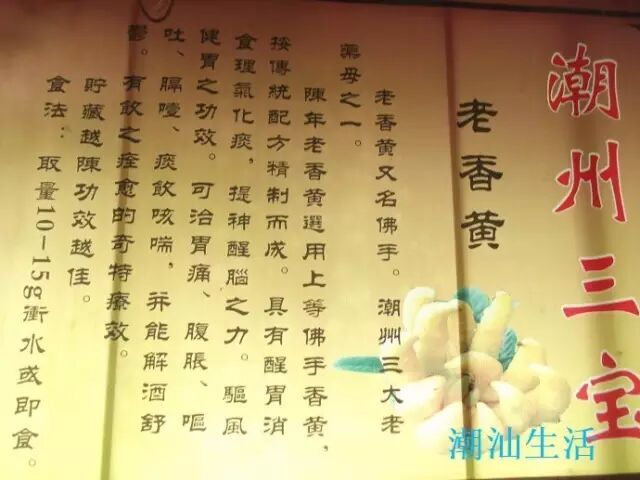 潮州三宝
老香黄
老香黄又名佛手。潮州三大老
藥母之一。
陳年老香黄選用上等佛手香黄，
按傳統配方精制而成。具有醒胃消
食理氣化痰，提神醒腦之力。驅風
健胃之功效。可治胃痛、腹脹、嘔
吐、膈噎、痰飲咳喘，并能解酒舒
鬱。有飲之痊愈的奇特療效。
貯藏越陳功效越佳。
食法：取量10-15g衝水或即食。
潮汕生活